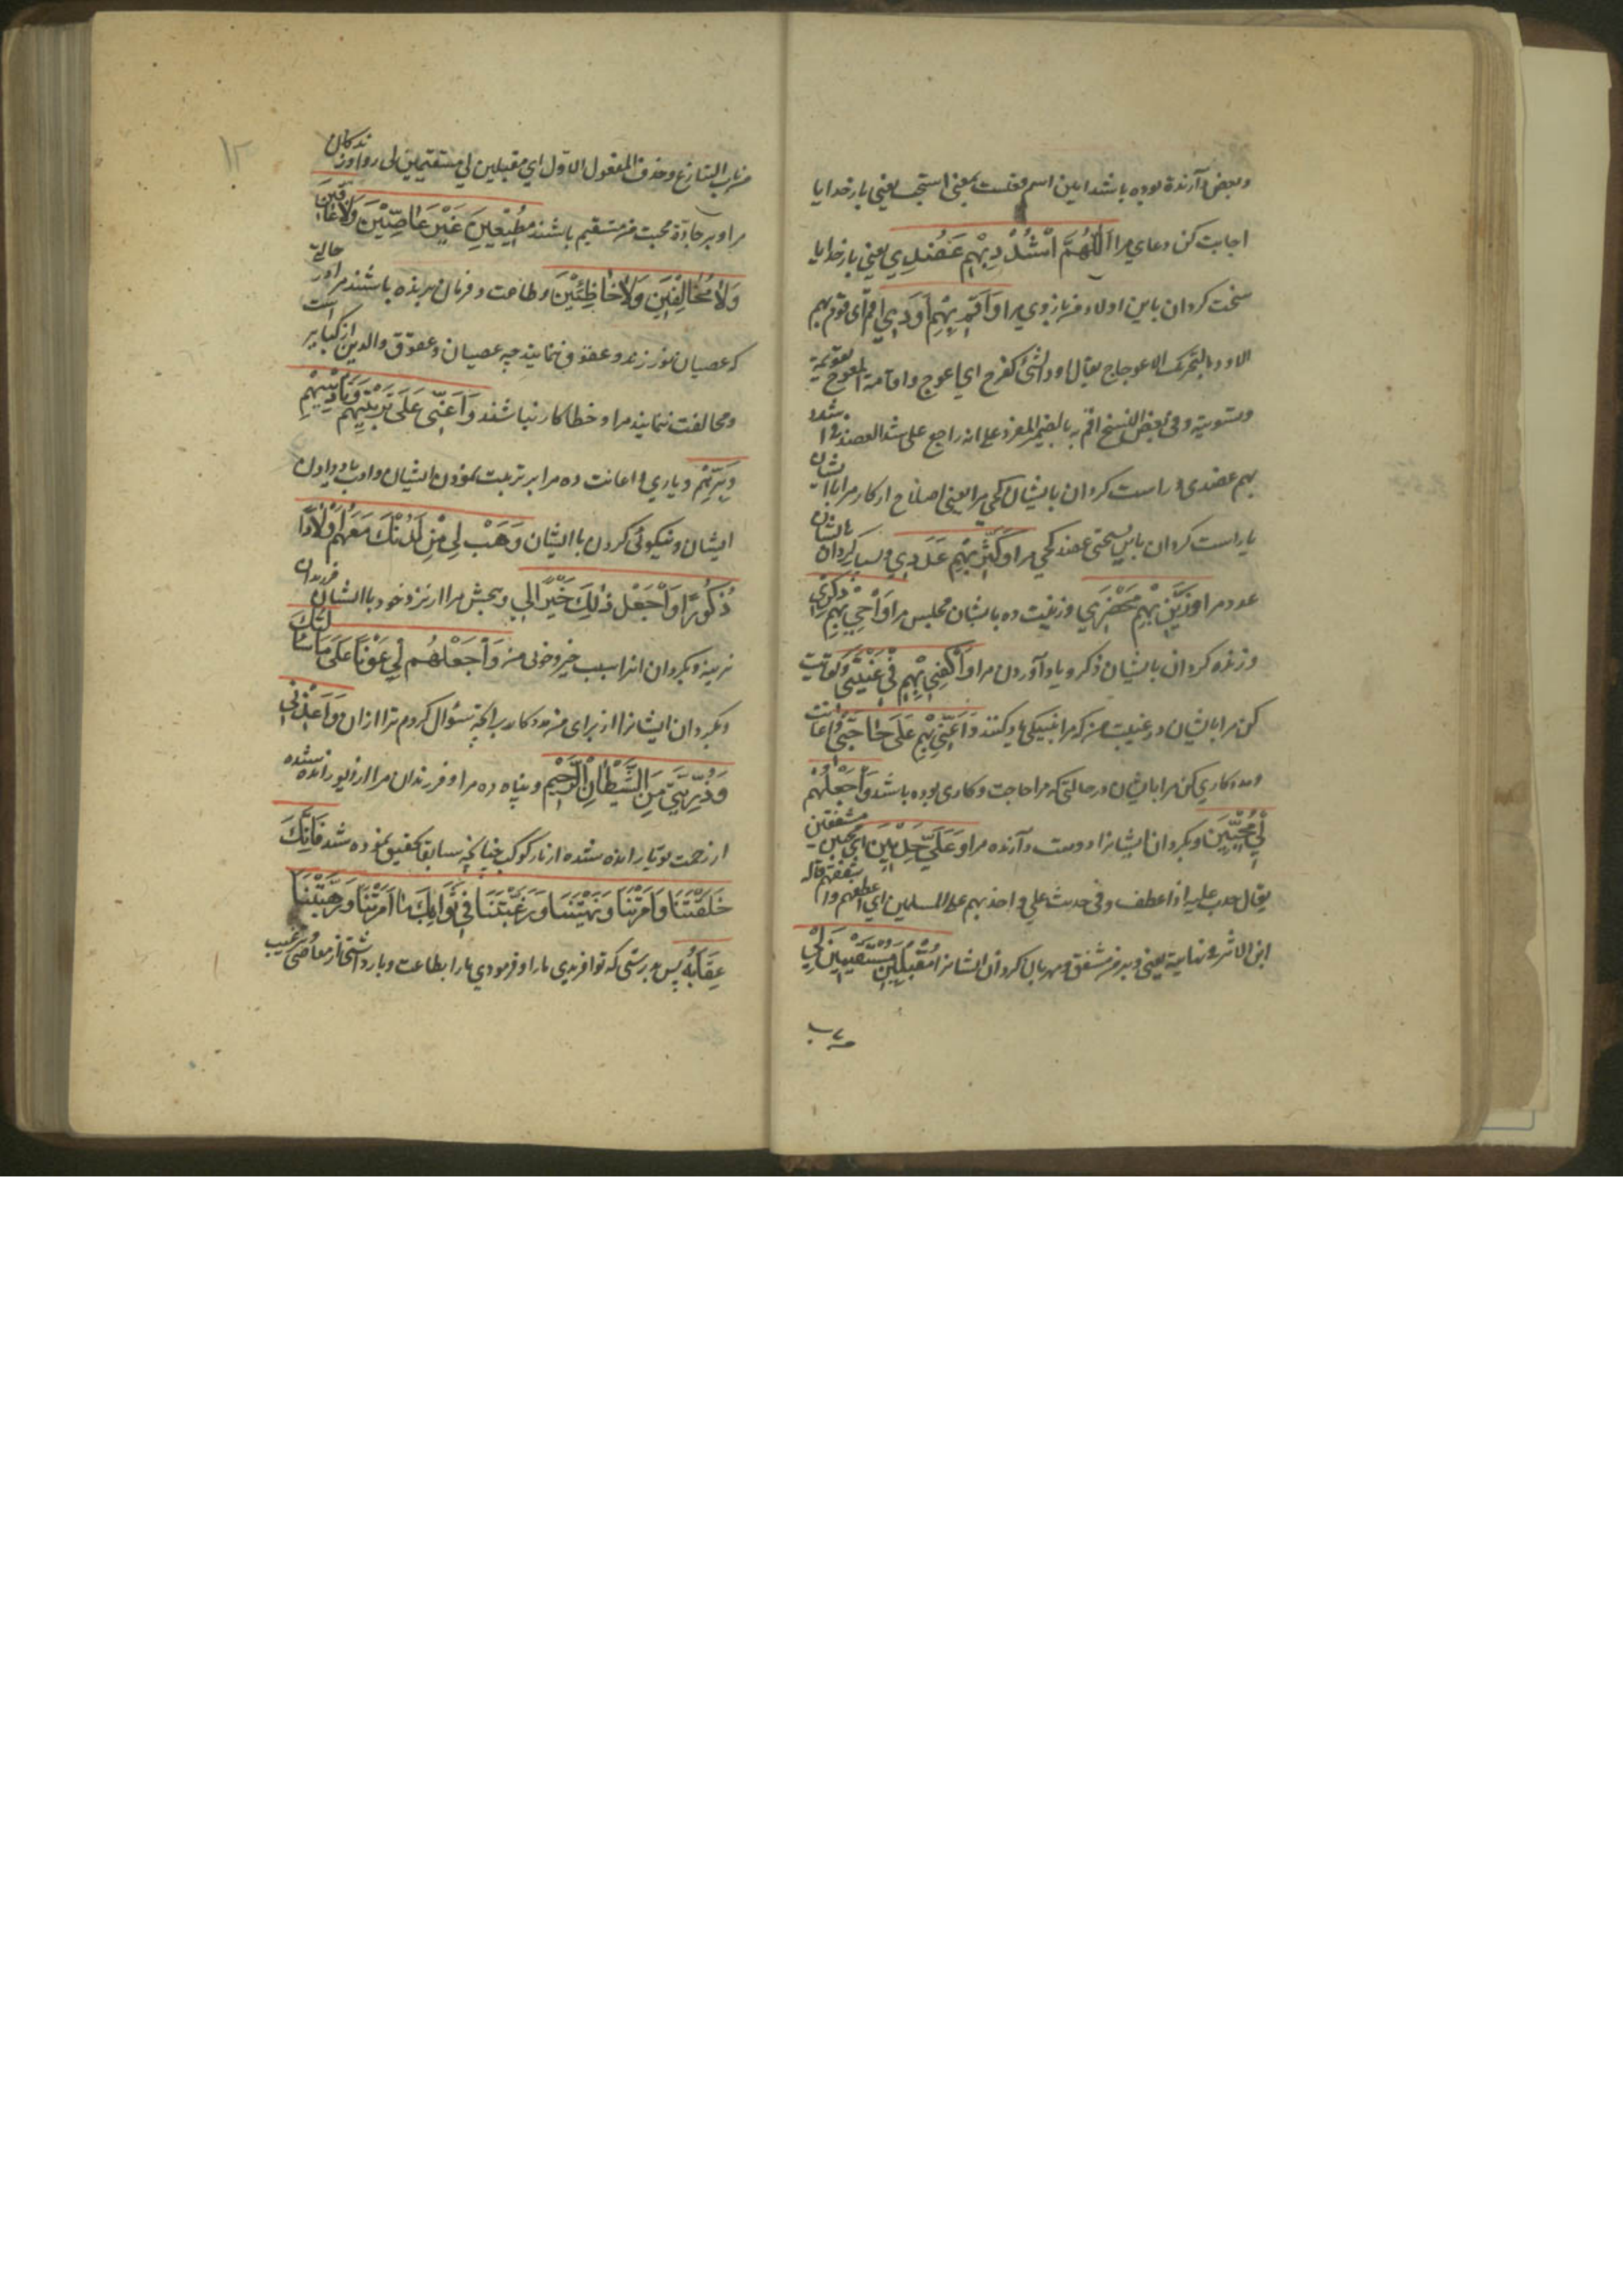 وبعض آرنده بوده باشد امین اسم فعلست بمعنی استجب یعنی بار خدایا
اجابت کن دعای مرا اَللّٰهُمَّ اشْدُدْ بِهِمْ عَضُدِي یعنی بار خدایا
سخت کردان باین اولاد من بازوی مرا وَاَقِمْ بِهِمْ اَوَدِي اقم ای قوم بهم
الاود بالتحریک الاعوجاج یقال اود الشئ کفرح ای اعوج واقامة المعوج تقویمه
وتسویته وفی بعض النسخ اقم به بالضمیر المفرد علی انه راجع علی شد العضد
بهم عضدی و راست کردان بایشان کجی مرا یعنی اصلاح ار کار مرا باایشان
یا راست کردان باین سختی عضد کجی مرا وَكَثِّرْ بِهِمْ عَدَدِي وبسیار کردان باایشان
عدد مرا وَزَيِّنْ بِهِمْ مَحْضَرِي وزینت ده باایشان مجلس مرا وَاَحْيِ بِهِمْ ذِكْرِي
وزنده کردان باایشان ذکر و یاد آوردن مرا وَاكْفِنِي بِهِمْ فِي غَيْبَتِي وکفایت
کن مرا باایشان در غیبت من که مرا بنیکی یاد کنند وَاَعِنِّي بِهِمْ عَلَى حَاجَتِي واعانت
ومددکاری کن مرا باایشان در حالتی که مرا حاجت وکاری بوده باشد وَاجْعَلْهُمْ
لِي مُحِبِّينَ وبکردان ایشانرا دوست دارنده مرا وَعَلَيَّ حَدِبِينَ ای محبین مشفقین
یقال حدب علیه اذا عطف وفی حدیث علی واحدبهم علی المسلمین ای اعطفهم واشفقهم قاله
ابن الاثیر فی نهایته یعنی وبر من مشفق ومهربان کردان ایشانرا مُقْبِلِينَ مُسْتَقِيمِينَ لِي
من باب التنازع وحذف المفعول الاول ای مقبلین لی مستقیمین لی رو آورندکان
مرا وبر جادّة محبت من مستقیم باشند مُطِيعِينَ غَيْرَ عَاصِينَ وَلَا عَاقِّينَ
وَلَا مُخَالِفِينَ وَلَا خَاطِئِينَ وطاعت و فرمان برنده باشند مرا در حالتی
که عصیان نورزند و عقوق ننمایند چه عصیان و عقوق والدین از کبایر است
ومخالفت ننمایند مرا و خطا کار نباشند وَاَعِنِّي عَلَى تَرْبِيَتِهِمْ وَتَأْدِيبِهِمْ
وَبِرِّهِمْ ویاری و اعانت ده مرا بر تربیت نمودن ایشان وادب دادن
ایشان ونیکوئی کردن باایشان وَهَبْ لِي مِنْ لَدُنْكَ مَعَهُمْ اَوْلَادًا
ذُكُورًا وَاجْعَلْ ذٰلِكَ خَيْرًا لِي وببخش مرا از نزد خود باایشان فرزندان
نرینه وبکردان انرا سبب خیر وخوبی من وَاجْعَلْهُمْ لِي عَوْنًا عَلَى مَا سَأَلْتُكَ
وبکردان ایشانرا از برای من مددکار بر آنچه سؤال کردم ترا ازان وَاَعِذْنِي
وَذُرِّيَّتِي مِنَ الشَّيْطَانِ الرَّجِيمِ وپناه ده مرا وفرزندان مرا از دیو رانده شده
از رحمت تو یا رانده شده از نار کوکب چنانچه سابقا تحقیق نموده شد فَاِنَّكَ
خَلَقْتَنَا وَاَمَرْتَنَا وَنَهَيْتَنَا وَرَغَّبْتَنَا فِي ثَوَابِكَ مَا اَمَرْتَنَا وَرَهَّبْتَنَا
عِقَابَهُ پس بدرستی که تو افریدی مارا وفرمودی مارا بطاعت وبازداشتی از معاصی وترغیب